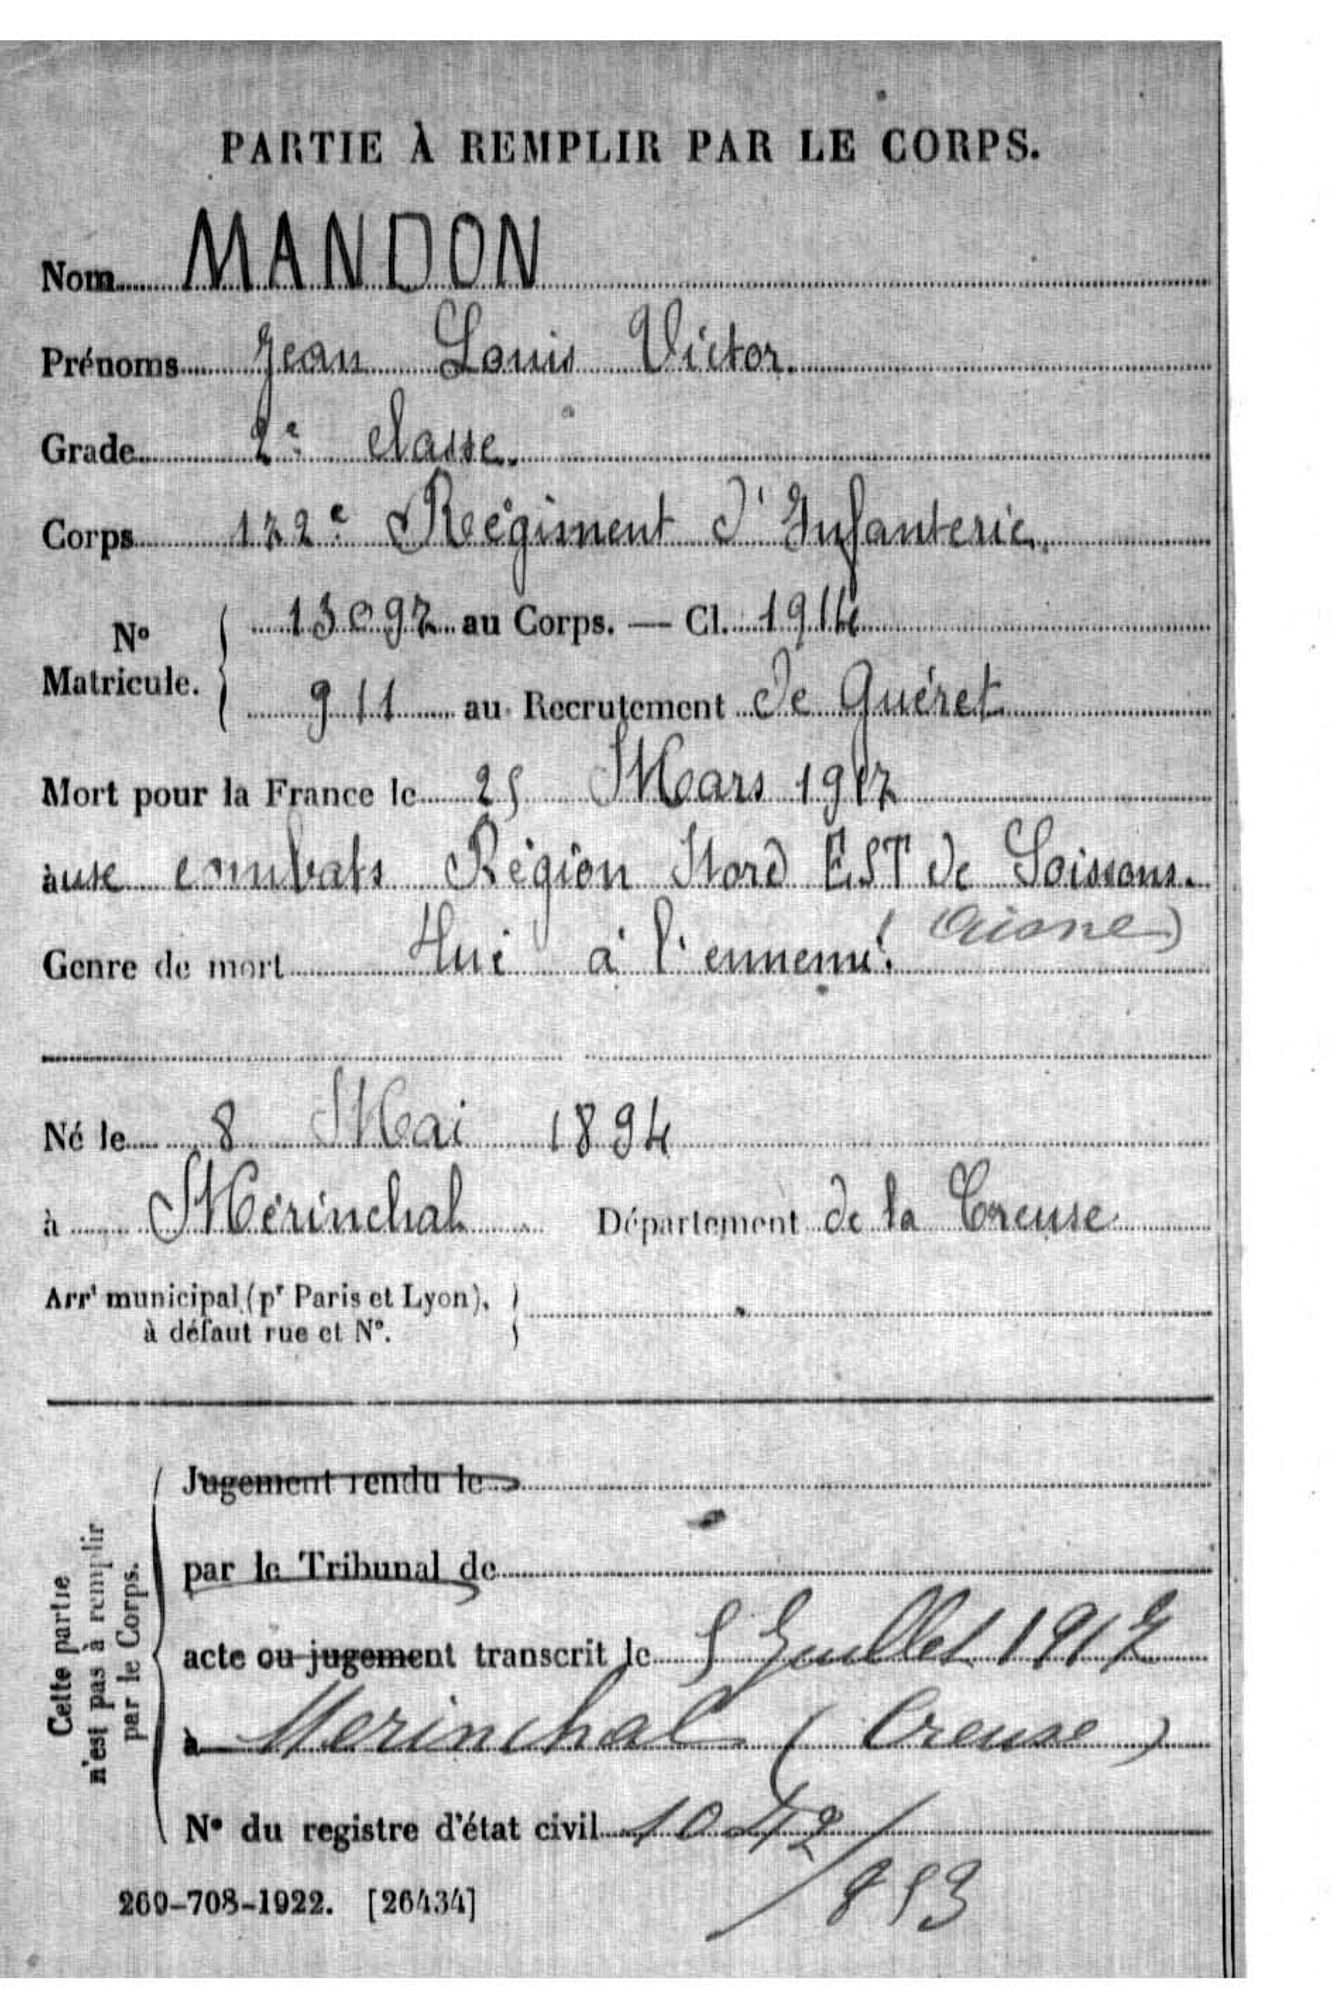 PARTIE À REMPLIR PAR LE CORPS.
Nom MANDON
Prénoms Jean Louis Victor.
Grade 2e classe.
Corps 172e Régiment d'Infanterie.
No Matricule. 13097 au Corps. — Cl. 1914
911 au Recrutement de Guéret
Mort pour la France le 25 Mars 1917
aux combats Région Nord EST de Soissons.
(Aisne)
Genre de mort Tué à l'ennemi.
Né le 8 Mai 1894
à Mérinchal Département de la Creuse
Arrt municipal (pr Paris et Lyon),
à défaut rue et No.
Cette partie
n'est pas à remplir
par le Corps.
Jugement rendu le
par le Tribunal de
acte ou jugement transcrit le 5 Juillet 1917
à Merinchal (Creuse)
No du registre d'état civil 1042/
853
269-708-1922. [26434]